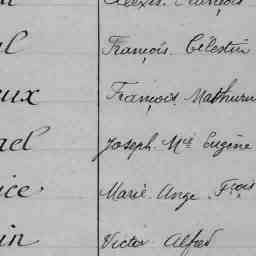 Alexis François
l François Célestin
ux François Mathurin
ael Joseph Mie Eugène
ice Marie Ange Fçois
in Victor Alfred